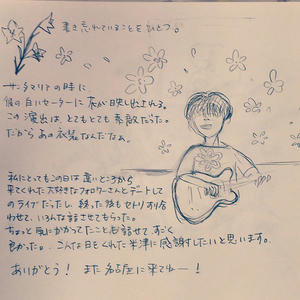 書き忘れていることをひとつ。
サンタマリアの時に
彼の白いセーターに花が映し出される。
この演出は とてもとても素敵だった。
だから あの衣装なんだなぁ。
私にとってもこの日は 遠いところから
来てくれた大好きなフォロワーさんとデートして
のライブだったし、終った後もセトリすり合
わせて、いろんな話させてもらった。
ちょっと気にかかってたことも話せて、すごく
良かった。こんな日をくれた米津に感謝したいと思います。
ありがとう! また名古屋に来てねー!